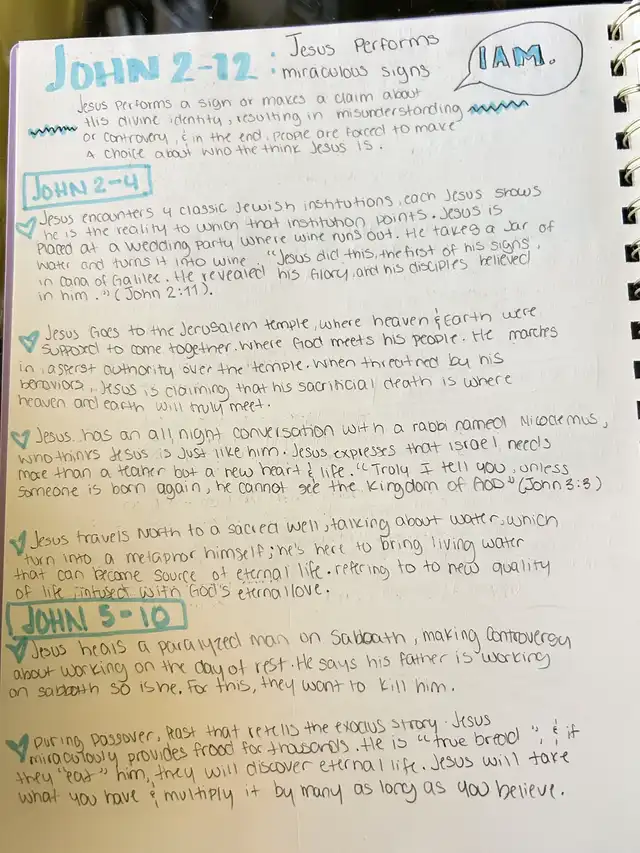 JOHN 2-12 : Jesus Performs
miraculous signs
I AM.
Jesus performs a sign or makes a claim about
His divine identity, resulting in misunderstanding
or controvery, & in the end, people are forced to make
a choice about who the think Jesus is.
JOHN 2-4
Jesus encounters 4 classic Jewish institutions, each Jesus shows
he is the reality to which that institution points. Jesus is
placed at a wedding party where wine runs out. He takes a Jar of
water and turns it into wine. "Jesus did this, the first of his signs,
in Cana of Galilee. He revealed his Glory, and his disciples believed
in him." (John 2:11).
Jesus Goes to the Jerusalem temple, where heaven & Earth were
supposed to come together. Where God meets his people. He marches
in, asperst authority over the temple. When threatned by his
behaviors, Jesus is claiming that his sacrificial death is where
heaven and earth will truly meet.
Jesus has an all night conversation with a rabbi named Nicodemus,
who thinks Jesus is Just like him. Jesus expresses that Israel needs
more than a teaher but a new heart & life. "Truly I tell you, unless
someone is born again, he cannot see the Kingdom of GOD" (John 3:3)
Jesus travels North to a sacred well, talking about water, which
turn into a metaphor himself; he's here to bring living water
that can become source of eternal life. refering to to new quality
of life, infused with God's eternal love.
JOHN 5-10
Jesus heals a paralyzed man on Sabbath, making controversy
about working on the day of rest. He says his father is working
on sabbath so is he. For this, they want to kill him.
During Passover, Fast that retells the exodus strory. Jesus
miraculously provides frood for thousands. He is "true bread", & if
they "eat" him, they will discover eternal life. Jesus will take
what you have & multiply it by many as long as you believe.